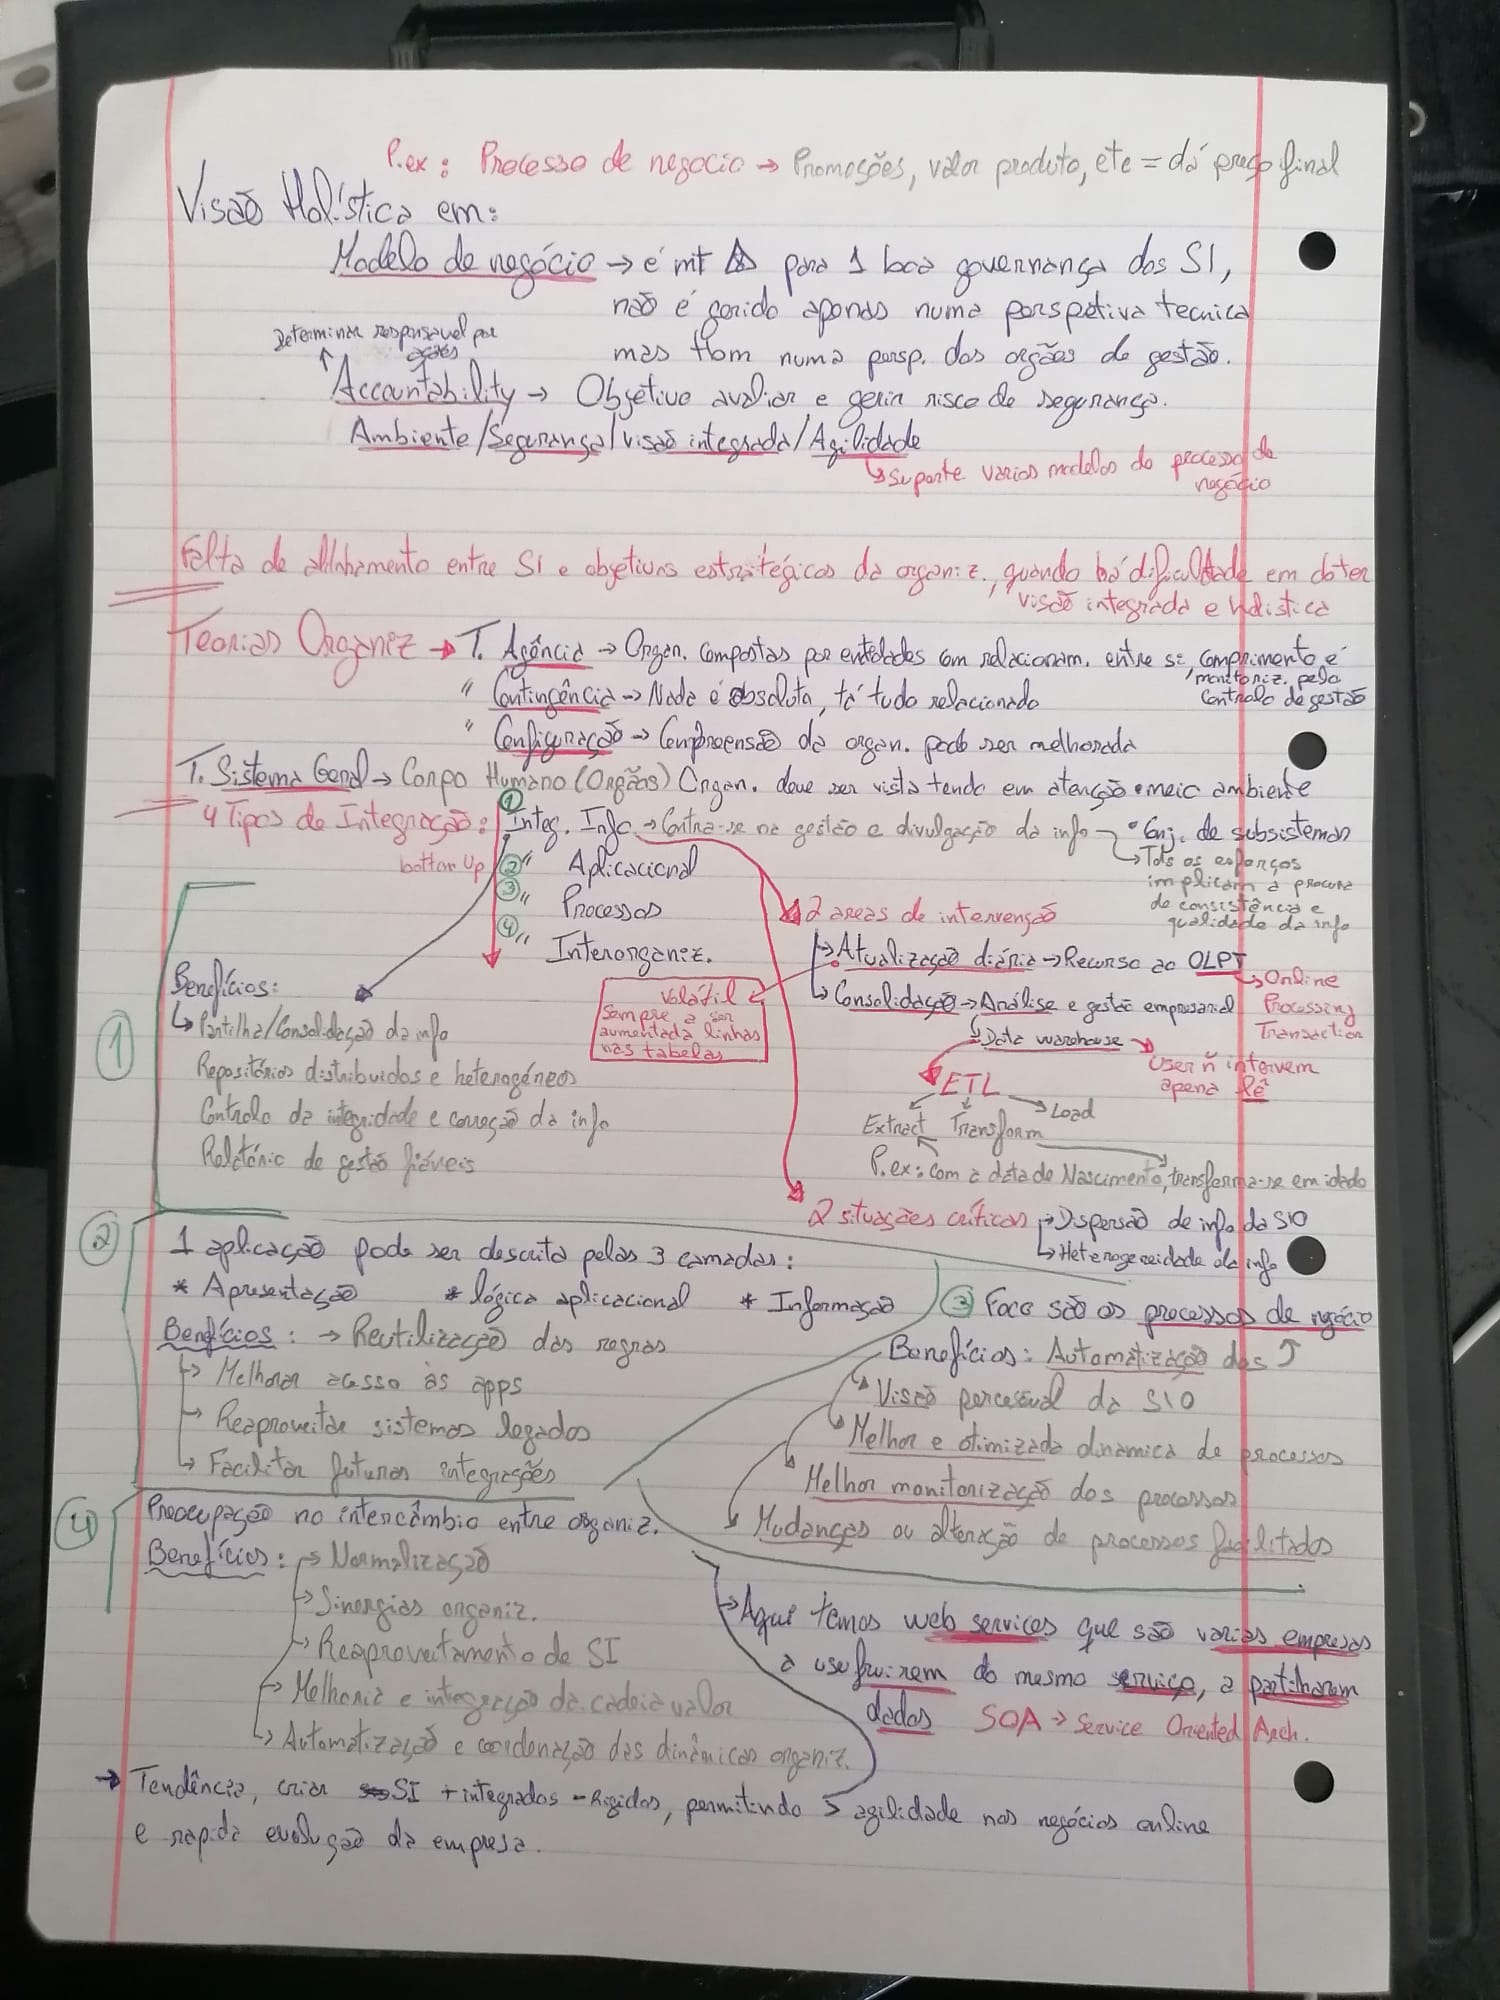 P.ex: Processo de negocio → Promoções, valor produto, etc = dá preço final
Visão Holística em:
Modelo de negócio → é mt para 1 boa governança dos SI,
não é gerido apenas numa perspetiva tecnica
mas tbom numa persp. dos orgãos de gestão.
Determinar responsavel por
ações
↑
Accountability → Objetivo avaliar e gerir risco de segurança.
Ambiente/Segurança/visão integrada/Agilidade
↳ Suporte varios modelos do processo de
negócio
Falta de alinhamento entre SI e objetivos estratégicos da organiz., quando há dificuldade em obter
visão integrada e holistica
Teorias Organiz → T. Agência → Organ. compostas por entidades com relacionam. entre si, comprimento é
monitoriz. pelo
controlo de gestão
" Contingência → Nada é absoluto, tá tudo relacionado
" Configuração → Compreensão da organ. pode ser melhorada
T. Sistema Geral → Corpo Humano (Orgãos) Organ. deve ser vista tendo em atenção o meio ambiente
4 Tipos de Integração: ① Integ. Info → Centra-se na gestão e divulgação da info → • Conj. de subsistemas
↳ Tds os esforços
implicam a procura
de consistência e
qualidade da info
bottom Up
② " Aplicacional
③ " Processos
④ " Interorganiz.
2 areas de intervenção
↳ Atualização diária → Recurso ao OLPT
↳ Online
Processing
Transaction
↳ Consolidação → Análise e gestão empresarial
↳ Data warehouse → User ñ intervem
apena lê
Volátil
Sempre a ser
aumentada linhas
nas tabelas
ETL
Extract Transform Load
P.ex: com a data de Nascimento, transforma-se em idade
2 situações críticas → Dispersão de info da SIO
↳ Heterogeneidade da info
①
Benefícios:
↳ Partilha/Consolidação da info
Repositórios distribuidos e heterogéneos
Controlo da integridade e correção da info
Relatório de gestão fiáveis
② 1 aplicação pode ser descrita pelas 3 camadas:
* Apresentação * lógica aplicacional * Informação
Benefícios: → Reutilização das regras
→ Melhorar acesso às apps
→ Reaproveitar sistemas legados
↳ Facilitar futuras integrações
③ Foco são os processos de negócio
Benefícios: Automatização dos ⤴
Visão percesual da SIO
Melhor e otimizada dinamica de processos
Melhor monitorização dos processos
Mudanças ou alteração de processos facilitados
④ Preocupação no intercâmbio entre organiz.
Benefícios: → Normalização
→ Sinergias organiz.
→ Reaproveitamento de SI
→ Melhoria e integração da cadeia valor
↳ Automatização e coordenação das dinâmicas organiz.
↳ Aqui temos web services que são varias empresas
a usufruirem do mesmo serviço, a partilharem
dados SOA → Service Oriented Arch.
→ Tendência, criar SI + integrados - Rigidos, permitindo > agilidade nos negócios online
e rapida evolução da empresa.